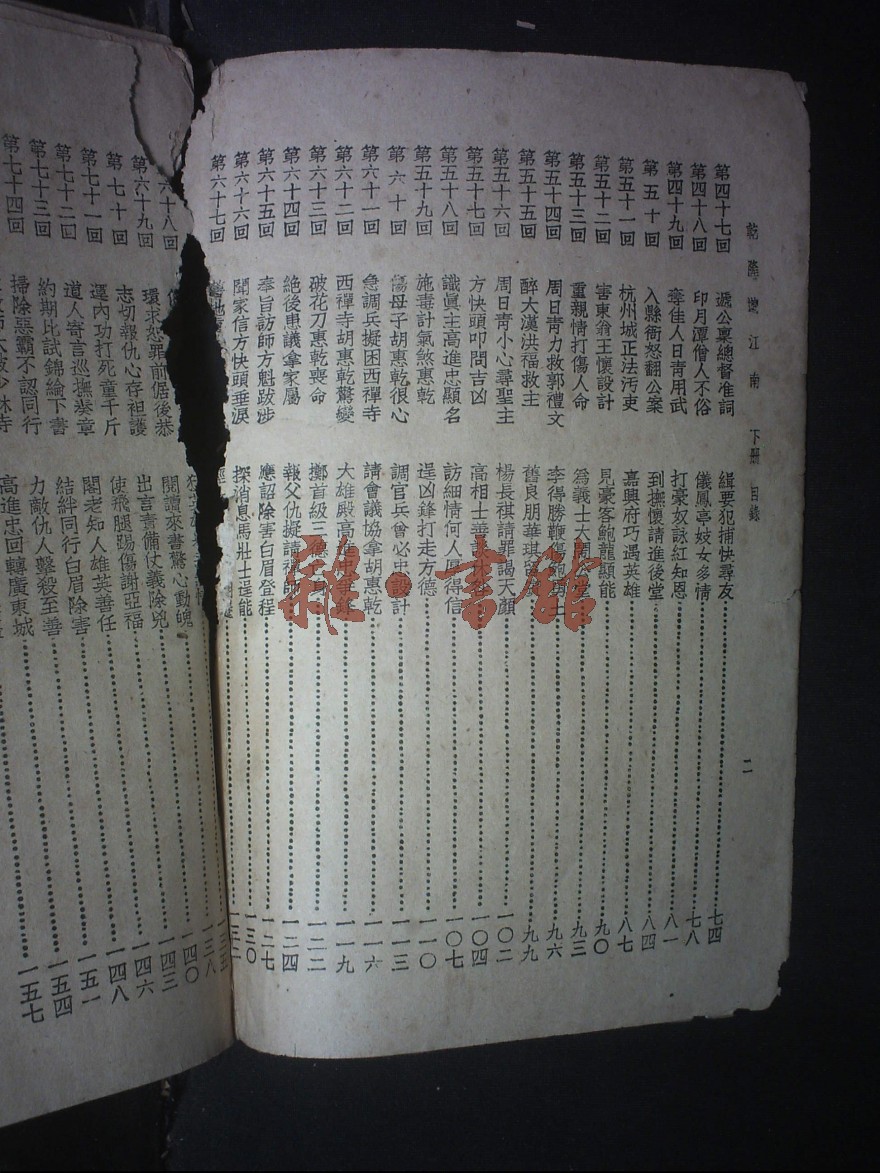 乾隆遊江南 下册 目錄
二
第四十七回 遞公稟總督准詞 緝要犯捕快尋友 七四
第四十八回 印月潭僧人不俗 儀鳳亭妓女多情 七八
第四十九回 牽佳人日青用武 打豪奴詠紅知恩 八一
第五十回 入縣衙怒翻公案 到撫懷請進後堂 八四
第五十一回 杭州城正法汚吏 嘉興府巧遇英雄 八七
第五十二回 害東翁王懷設計 見豪客鮑龍顯能 九〇
第五十三回 重親情打傷人命 爲義士大鬧公堂 九三
第五十四回 周日靑力救郭禮文 李得勝鞭傷鮑勇士 九六
第五十五回 醉大漢洪福救主 舊良朋華琪留 九九
第五十六回 周日靑小心尋聖主 楊長祺請罪謁天顏 一〇二
第五十七回 方快頭叩問吉凶 高相士善 一〇四
第五十八回 識眞主高進忠顯名 訪細情何人厚得信 一〇七
第五十九回 施毒計氣煞惠乾 逞凶鋒打走方德 一一〇
第六十回 傷母子胡惠乾很心 調官兵曾必忠設計 一一三
第六十一回 急調兵擬困西禪寺 請會議協拿胡惠乾 一一六
第六十二回 西禪寺胡惠乾驚變 大雄殿高進忠爭鋒 一一九
第六十三回 破花刀惠乾喪命 擲首級三德 一二二
第六十四回 絕後患議拿家屬 報父仇擬請 師 一二四
第六十五回 奉旨訪師方魁跋涉 應詔除害白眉登程 一二七
第六十六回 聞家信方快頭垂淚 探消息馬壯士逞能 一三〇
第六十七回
六十八回 一三八
第六十九回 環求恕罪前倨後恭 開讀來書驚心動魄 一四〇
第七十回 志切報仇心存袒護 出言責備仗義除兇 一四三
第七十一回 運內功打死童千斤 使飛腿踢傷謝亞福 一四六
第七十二回 道人寄言巡撫奏章 閣老知人雄英善任 一四八
第七十三回 約期比試錦綸下書 結絆同行白眉除害 一五一
第七十四回 掃除惡霸不認同行 力敵仇人擊殺至善 一五四
少林寺 高進忠回轉廣東城 一五七
雅·書館